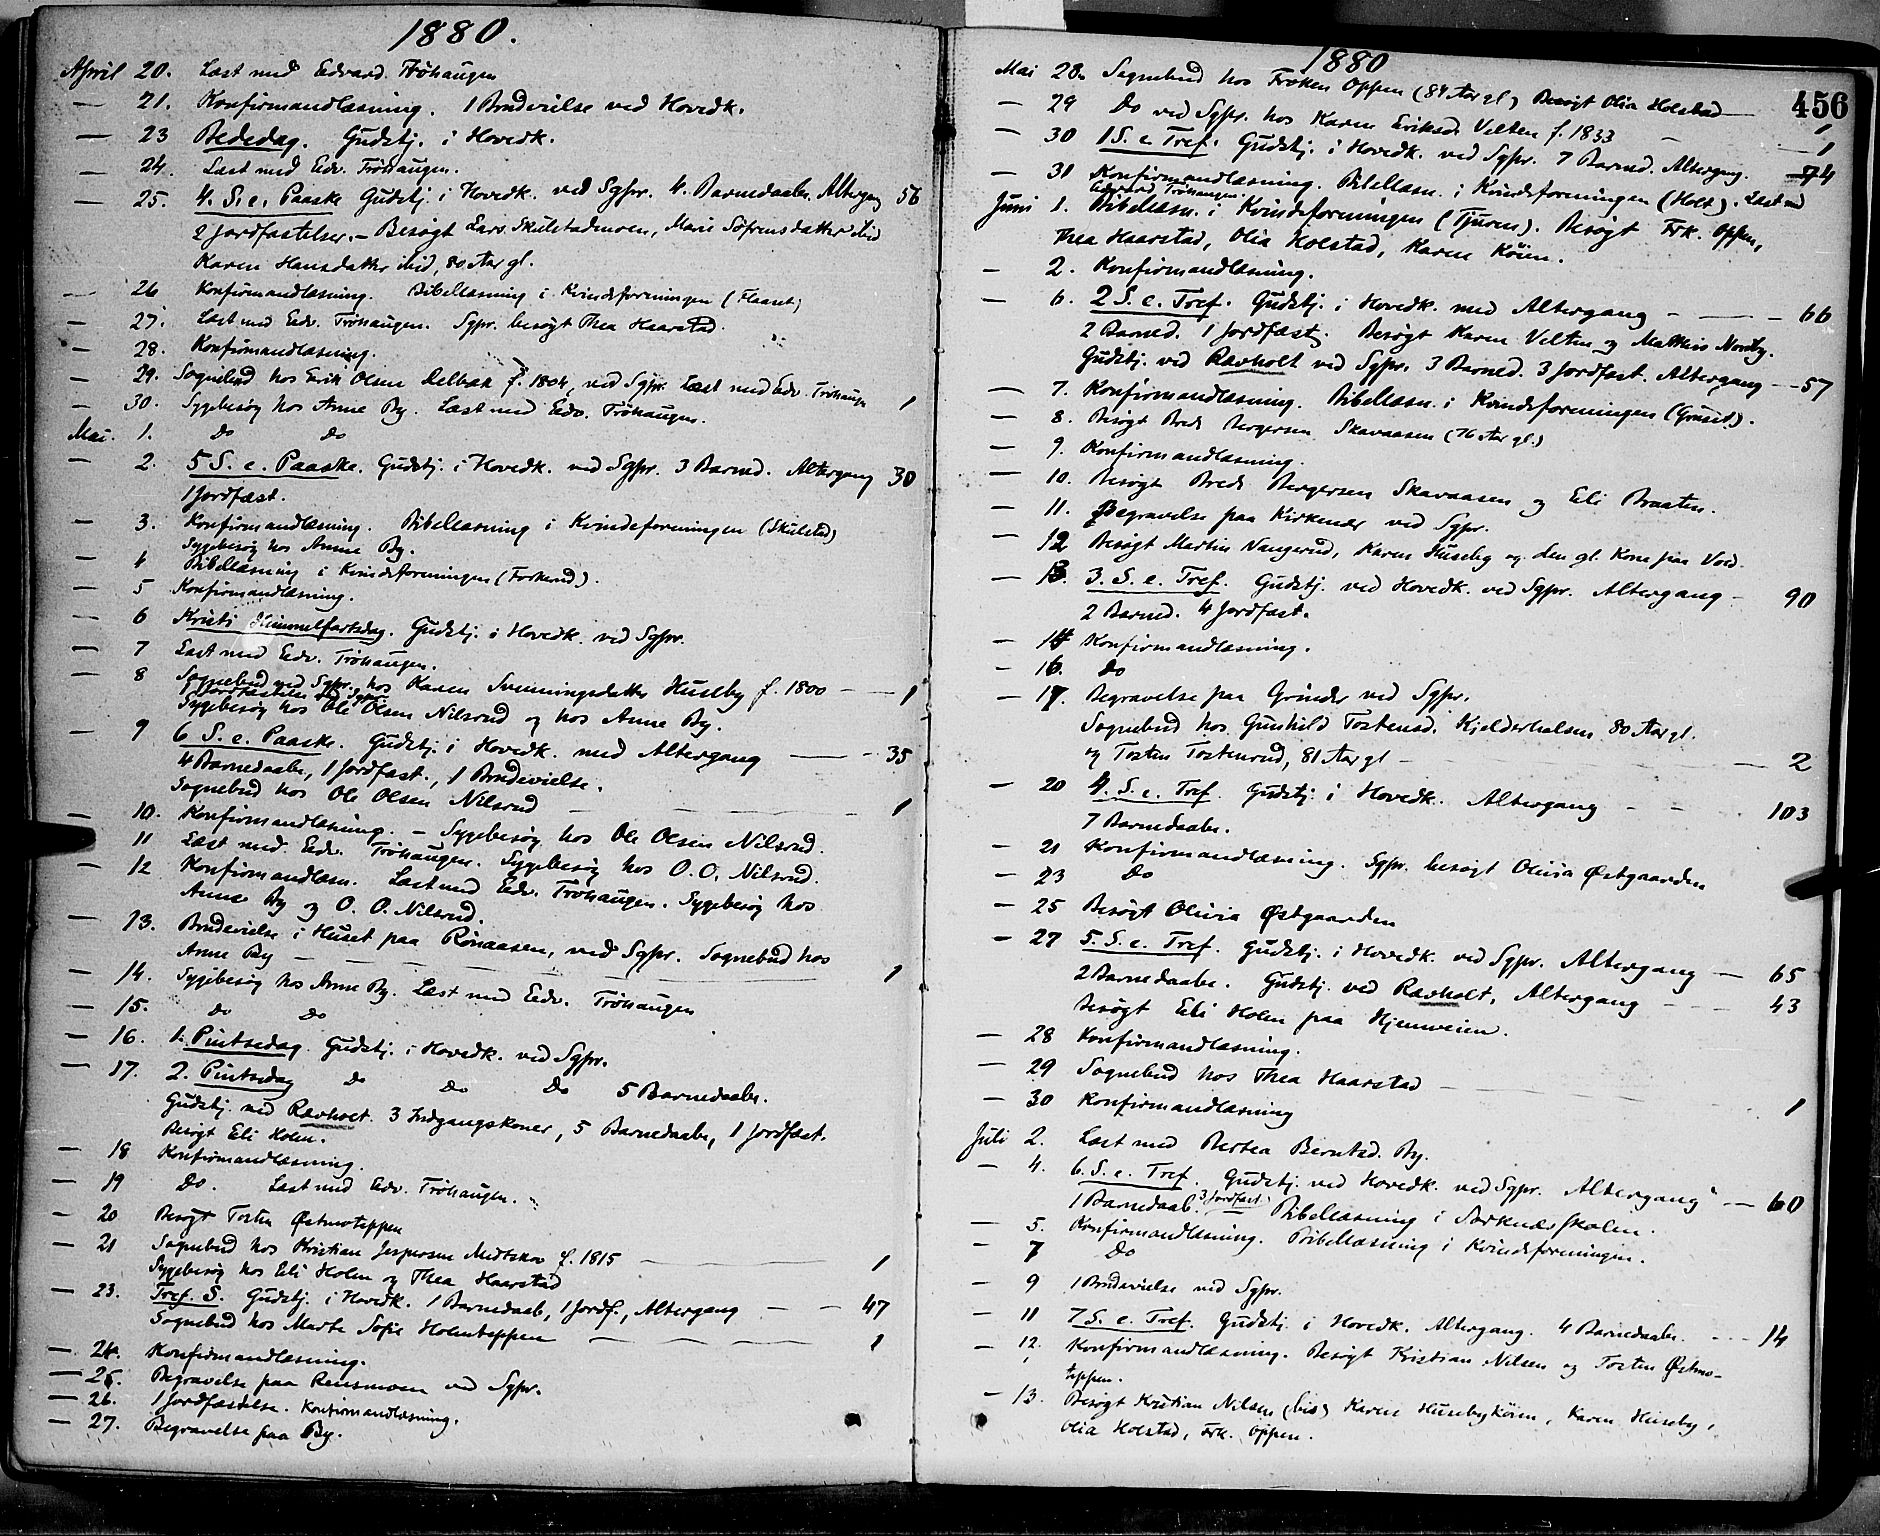 1880.
April 20. Læst med Edvard Trøhaugen
— 21. Konfirmandlæsning. 1 Brudevielse ved Hovedk.
— 23 Bededag. Gudstj. i Hovedk.
— 24. Læst med Edv. Trøhaugen.
— 25. 4. S. e. Paaske Gudstj. i Hovedk. ved Sgpr. 4. Barnedaabe. Altergang 56
2 Jordfæstelser. – Besøgt Lars Skulstadmoen, Marie Sørensdatter ibid
Karen Hansdatter ibid, 80 Aar gl.
— 26 Konfirmandlæsning. Bibellæsning i Kvindeforeningen (Flaaret)
— 27. Læst med Edv. Trøhaugen. Sgpr. besøgt Thea Haarstad.
— 28. Konfirmandlæsning.
— 29. Sognebud hos Erik Olsen Delbæk f. 1804, ved Sgpr. Læst med Edv. Trøhaugen 1
— 30. Sygebesøg hos Anne By. Læst med Edv. Trøhaugen.
Mai. 1. Do Do
— 2. 5 S. e. Paaske. Gudstj. i Hovedk. ved Sgpr. 3 Barned. Altergang 30
1 Jordfæst.
— 3. Konfirmandlæsning. Bibellæsning i Kvindeforeningen (Skulstad)
Sygebesøg hos Anne By.
— 4 Bibellæsning i Kvindeforeningen (Forkerud).
— 5 Konfirmandlæsning.
— 6 Kristi Himmelfartsdag. Gudstj. i Hovedk. ved Sgpr.
— 7 Læst med Edv. Trøhaugen.
— 8 Sognebud ved Sgpr. hos Karen Svenningsdatter Huseby f. 1800 — — 1
1 Jordfæstelse ved Sgpr.
Sygebesøg hos Ole Olsen Nilsrud og hos Anne By.
— 9 6 S. e. Paaske. Gudstj. i Hovedk. med Altergang — — 35
4 Barnedaabe, 1 Jordfæst., 1 Brudevielse.
Sognebud hos Ole Olsen Nilsrud — — 1
— 10. Konfirmandlæsning. – Sygebesøg hos Ole Olsen Nilsrud.
— 11 Læst med Edv. Trøhaugen. Sygebesøg hos O. O. Nilsrud.
— 12 Konfirmandlæsn. Læst med Edv. Trøhaugen. Sygebesøg hos
Anne By og O. O. Nilsrud.
— 13. Brudevielse i Huset paa Rønaasen, ved Sgpr. Sognebud hos
Anne By — — 1
— 14. Sygebesøg hos Anne By. Læst med Edv. Trøhaugen
— 15. Do Do
— 16. 1. Pintsedag. Gudstj. i Hovedk. ved Sgpr.
— 17. 2. Pintsedag Do Do Do 5 Barnedaabe.
Gudstj. ved Ravholt. 3 Indgangskoner, 5 Barnedaabe, 1 Jordfæst.
Besøgt Eli Holen.
— 18 Konfirmandlæsning.
— 19 Do. Læst med Edv. Trøhaugen.
— 20 Besøgt Tosten Østmoteppen
— 21 Sognebud hos Kristian Jespersen Midtskov f. 1815 — — 1
Sygebesøg hos Eli Holen og Thea Haarstad
— 23. Tref. S. Gudstj. i Hovedk. 1 Barnedaab, 1 Jordf., Altergang — — 47
Sognebud hos Marte Sofie Holmteppen — — 1
— 24. Konfirmandlæsning.
— 25. Begravelse paa Rensmoen ved Sgpr.
— 26. 1 Jordfæstelse. Konfirmandlæsning.
— 27. Begravelse paa By.
1880
456
Mai 28. Sognebud hos Frøken Oppen (84 Aar gl.) Besøgt Olia Holstad — 1
— 29 Do ved Sgpr. hos Karen Eriksd. Velten f. 1833 — 1
— 30 1 S. e. Tref. Gudstj. i Hovedk. ved Sgpr. 7 Barned. Altergang. — 74
— 31 Konfirmandlæsning. Bibellæsn. i Kvindeforeningen (Holt). Læst med
Edvard Trøhaugen.
Juni 1. Bibellæsn. i Kvindeforeningen (Tjuren). Besøgt Frk. Oppen,
Thea Haarstad, Olia Holstad, Karen Køien.
— 2. Konfirmandlæsning.
— 6. 2 S. e. Tref. Gudstj. i Hovedk. med Altergang — — 66
2 Barned. 1 Jordfæst. Besøgt Karen Velten og Mathias Nordby.
Gudstj. ved Ravholt ved Sgpr. 3 Barned. 3 Jordfæst. Altergang — 57
— 7. Konfirmandlæsning. Bibellæsn. i Kvindeforeningen (Grüset).
— 8. Besøgt Brede Bergersen Skavaasen (76 Aar gl.)
— 9. Konfirmandlæsning.
— 10. Besøgt Brede Bergersen Skavaasen og Eli Braaten.
— 11. Begravelse paa Kirkenær ved Sgpr.
— 12 Besøgt Martin Vangerud, Karen Huseby og den gl. Kone paa Vold.
— 13. 3. S. e. Tref. Gudstj. ved Hovedk. ved Sgpr. Altergang — 90
2 Barned. 4 Jordfæst.
— 14 Konfirmandlæsning.
— 16. Do
— 17. Begravelse paa Grinder ved Sgpr.
Sognebud hos Gunhild Tostensd. Kjelderhalsen 80 Aar gl.
og Tosten Tostenrud, 81 Aar gl — — 2
— 20 4. S. e. Tref. Gudstj. i Hovedk. Altergang — — 103
7 Barnedaabe.
— 21 Konfirmandlæsning. Sgpr. besøgt Oluia Østgaarden
— 23 Do
— 25 Besøgt Oluia Østgaarden
— 27 5. S. e. Tref. Gudstj. i Hovedk. ved Sgpr. Altergang — 65
2 Barnedaabe. Gudstj. ved Ravholt. Altergang — — 43
Besøgt Eli Holen paa Hjemveien.
— 28 Konfirmandlæsning.
— 29 Sognebud hos Thea Haarstad — — 1
— 30 Konfirmandlæsning
Juli 2. Læst med Bertea Berntsd. By.
— 4. 6. S. e. Tref. Gudstj. ved Hovedk. ved Sgpr. Altergang — 60
1 Barnedaab. 3 Jordfæst. Bibellæsning i Sorknæsskolen.
— 5. Konfirmandlæsning. Bibellæsning i Kvindeforeningen.
— 7 Do
— 9 1 Brudevielse ved Sgpr.
— 11 7 S. e. Tref. Gudstj. i Hovedk. Altergang. 4 Barnedaabe. — — 14
— 12. Konfirmandlæsning. Besøgt Kristian Nilsen og Tosten Østmo-
teppen.
— 13. Besøgt Kristian Nilsen (bis) Karen Husebykøien, Karen Huseby,
Olia Holstad, Frk. Oppen.